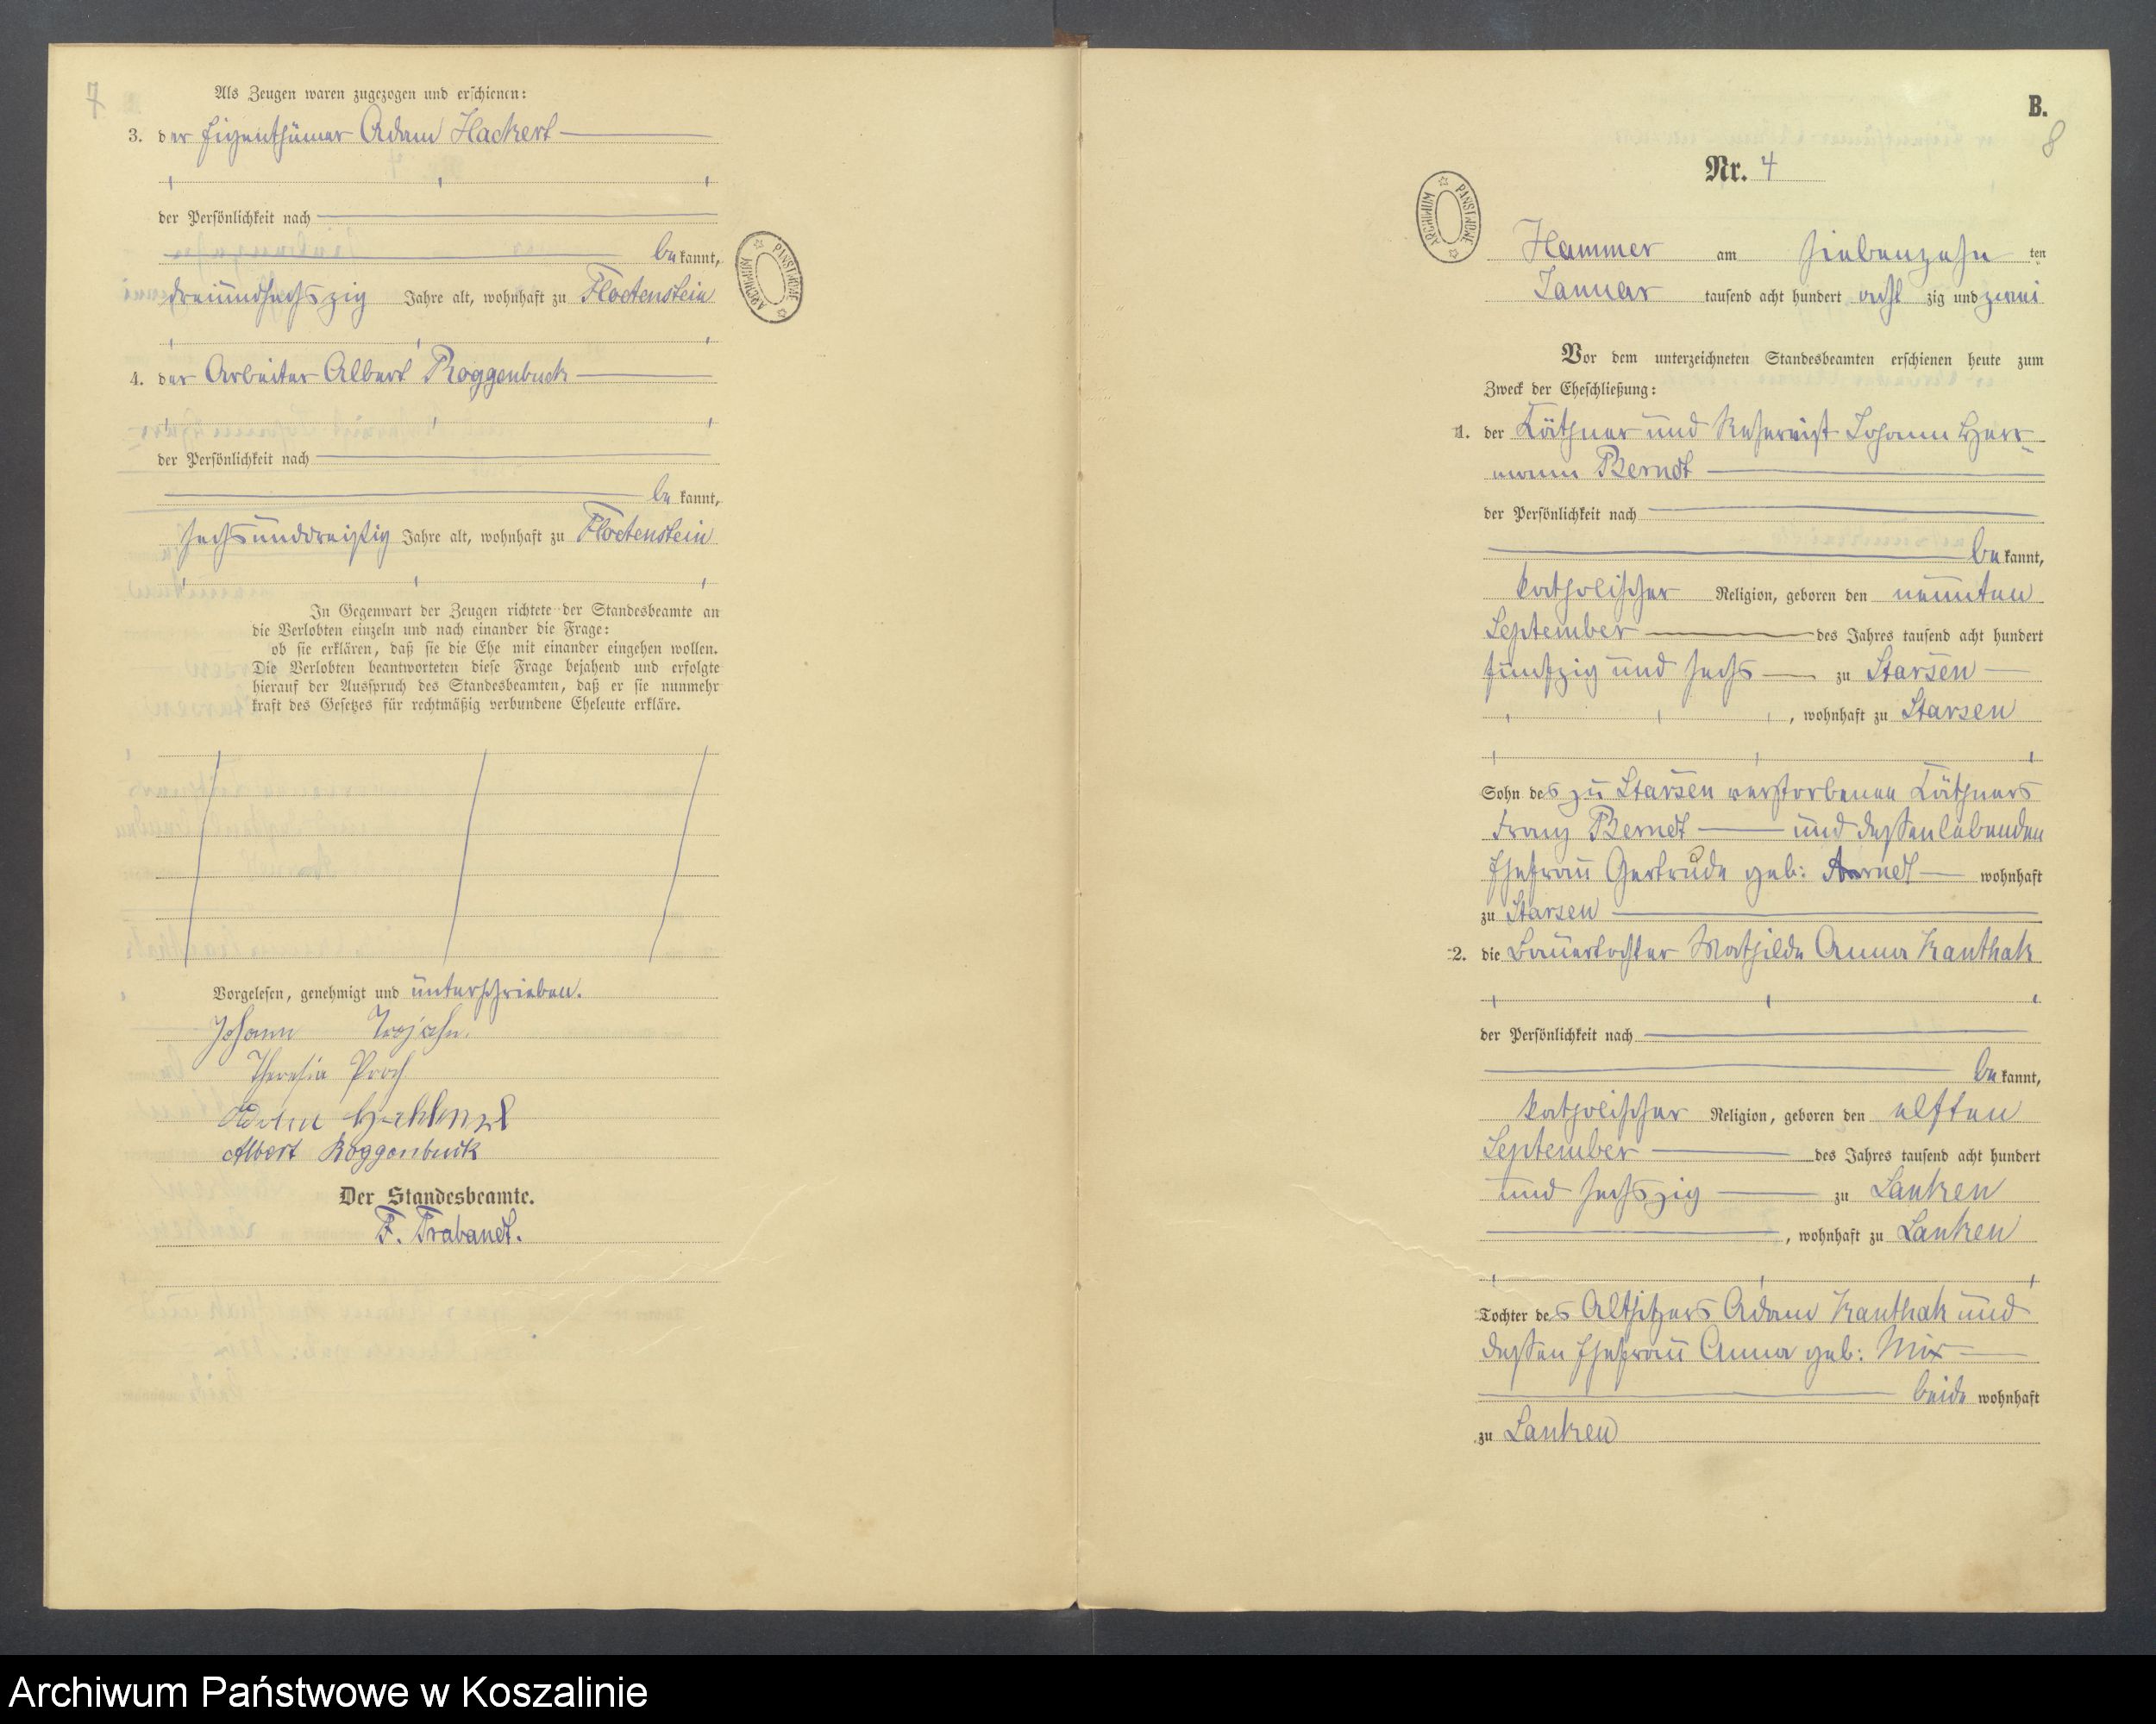 7
Als Zeugen waren zugezogen und erschienen:
3. der Eigenthümer Adam Hackert
der Persönlichkeit nach
bekannt,
dreiundsechszig Jahre alt, wohnhaft zu Floetenstein
4. der Arbeiter Albert Roggenbuck
der Persönlichkeit nach
bekannt,
sechsunddreißig Jahre alt, wohnhaft zu Floetenstein
In Gegenwart der Zeugen richtete der Standesbeamte an
die Verlobten einzeln und nach einander die Frage:
ob sie erklären, daß sie die Ehe mit einander eingehen wollen.
Die Verlobten beantworteten diese Frage bejahend und erfolgte
hierauf der Ausspruch des Standesbeamten, daß er sie nunmehr
kraft des Gesetzes für rechtmäßig verbundene Eheleute erkläre.
Vorgelesen, genehmigt und unterschrieben.
Johann Trojahn.
Theresia Proch
Adam
Albert Roggenbuck
Der Standesbeamte.
F. Trabandt.
ARCHIWUM PAŃSTWOWE
B.
8
Nr. 4
ARCHIWUM PAŃSTWOWE
Hammer am siebenzehn ten
Januar tausend acht hundert acht zig und zwei
Vor dem unterzeichneten Standesbeamten erschienen heute zum
Zweck der Eheschließung:
1. der Käthner und Reservist Johann Herr-
mann Berndt
der Persönlichkeit nach
bekannt,
katholischer Religion, geboren den neunten
September des Jahres tausend acht hundert
fünfzig und sechs zu Starsen
, wohnhaft zu Starsen
Sohn des zu Starsen verstorbenen Käthners
Franz Berndt und dessen lebenden
Ehefrau Gertrude geb: Arndt wohnhaft
zu Starsen
2. die Bauertochter Mathilde Anna Kanthak
der Persönlichkeit nach
bekannt,
katholischer Religion, geboren den elften
September des Jahres tausend acht hundert
und sechszig zu Lanken
, wohnhaft zu Lanken
Tochter des Altsitzers Adam Kanthak und
dessen Ehefrau Anna geb: Mix
beide wohnhaft
zu Lanken
Archiwum Państwowe w Koszalinie